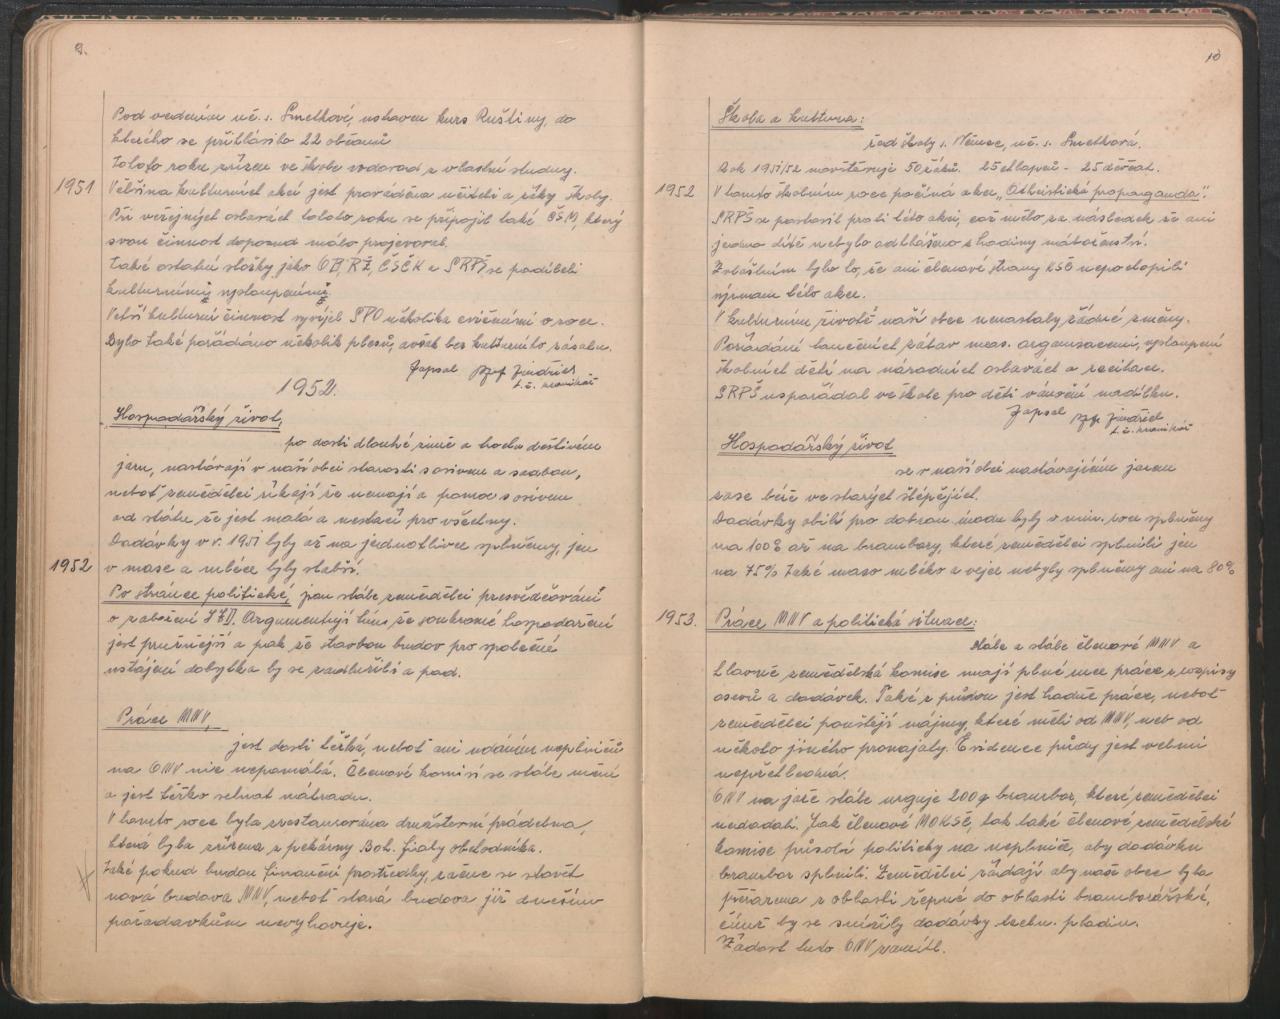 9.
Pod vedením uč. s. Smetkové, ustaven kurs Ruštiny, do
kterého se přihlásilo 22 občanů
Tohoto roku zřízen ve škole vodovod z vlastní studny.
1951
Většina kulturních akcí jest prováděna učiteli a žáky školy.
Při veřejných oslavách tohoto roku se připojil také ČSM, který
svou činnost doposud málo projevoval.
Také ostatní složky jako OB, RŽ, ČSČK a SRPŠ se podíleli
kulturními vystoupeními
Větší kulturní činnost vyvíjel SPO několika cvičeními v roce.
Bylo také pořádáno několik plesů, avšak bez kulturního rázu.
Zapsal Jindřich
t. č. kronikář
1952.
Hospodářský život,
po dosti dlouhé zimě a trochu deštivém
jaru, nastávají v naší obci starosti s osivem a sadbou,
neboť zemědělci říkají že nemají a pomoc s osivem
od státu že jest malá a nestačí pro všechny.
Dodávky v r. 1951 byly až na jednotlivce splněny, jen
1952
v mase a mléce byly slabší.
Po stránce politické, jsou stále zemědělci přesvědčováni
o založení JZD. Argumentují tím, že soukromé hospodaření
jest pružnější a pak že stavbou budov pro společné
ustájení dobytka by se zadlužili a pod.
Práce MNV,
jest dosti těžká, neboť ani udáním neplničů
na ONV nic nepomáhá. Členové komisí se stále mění
a jest těžko sehnat náhradu.
V tomto roce byla zrestaurována družstevní prádelna,
která byla zřízena z pekárny Boh. Fialy obchodníka.
Také pokud budou finanční prostředky, začne se stavět
nová budova MNV, neboť stará budova již dnešním
požadavkům nevyhovuje.
10
Škola a kultura:
řed. školy s. Němec, uč. s. Smetková.
Rok 1951/52 navštěvuje 50 žáků. 25 chlapců - 25 děvčat.
1952
V tomto školním roce počíná akce „Atheistická propaganda".
SRPŠ se postavil proti této akci, což mělo za následek že ani
jedno dítě nebylo odhlášeno z hodiny náboženství.
Zvláštním bylo to, že ani členové strany KSČ nepochopili
význam této akce.
V kulturním životě naší obce nenastaly žádné změny.
Pořádání tanečních zábav mas. organisacemi, vystoupení
školních dětí na národních oslavách a recitace.
SRPŠ uspořádal ve škole pro děti vánoční nadílku.
Zapsal Jindřich
t. č. kronikář
Hospodářský život
se v naší obci nastávajícím jarem
zase béře ve starých šlépějích.
Dodávky obilí pro dobrou úrodu byly v min. roce splněny
na 100% až na brambory, které zemědělci splnili jen
na 75% Také maso mléko a vejce nebyly splněny ani na 80%
1953.
Práce MNV a politická situace:
Stále a stále členové MNV a
hlavně zemědělská komise mají plné ruce práce s rozpisy
osevů a dodávek. Také s půdou jest hodně práce, neboť
zemědělci pouštějí nájmy, které měli od MNV, neb od
někoho jiného pronajaty. Evidence půdy jest velmi
nepřehledná.
ONV na jaře stále urguje 200 q brambor, které zemědělci
nedodali. Jak členové MOKSČ, tak také členové zemědělské
komise působí politicky na neplniče, aby dodávku
brambor splnili. Zemědělci žádají aby naše obec byla
přeřazena z oblasti řepné do oblasti bramborářské,
čímž by se snížily dodávky všech. plodin.
Žádost tuto ONV zamítl.